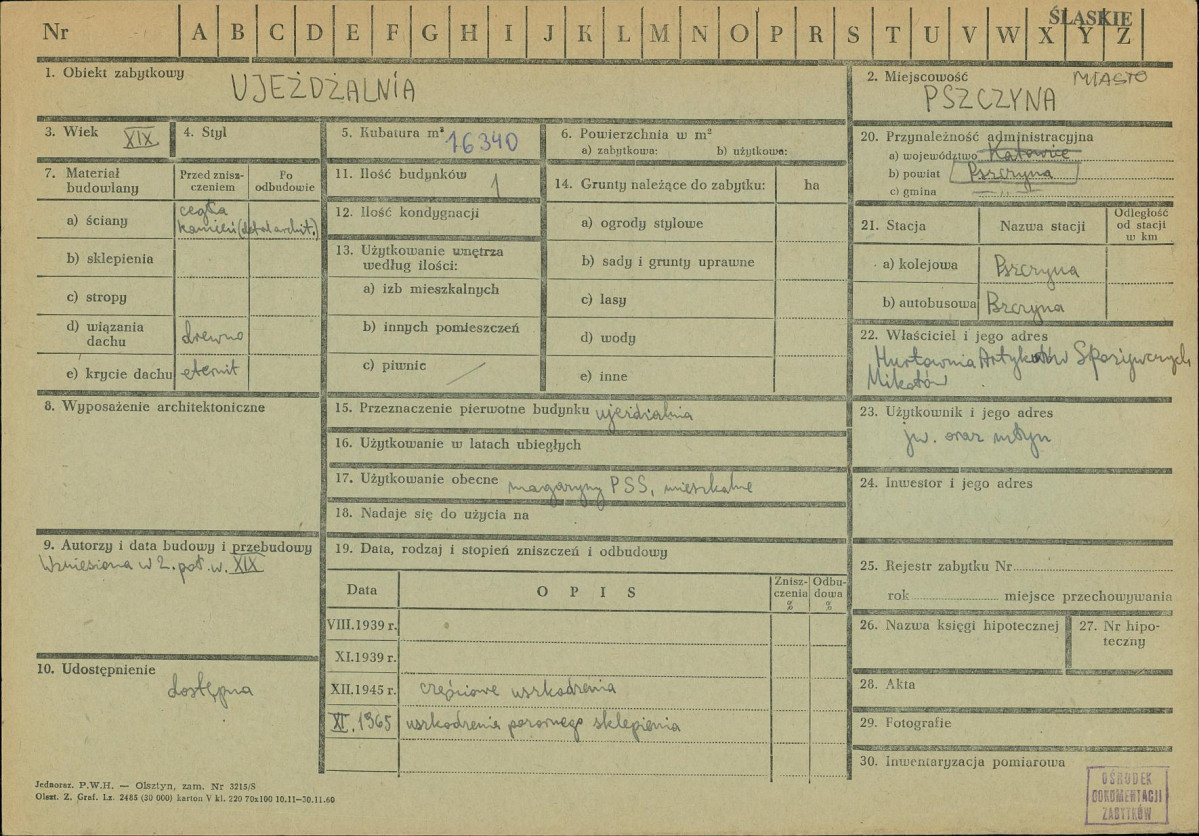 Nr A B C D E F G H I J K L M N O P R S T U V W X Y Z
ŚLĄSKIE
1. Obiekt zabytkowy
UJEŻDŻALNIA
2. Miejscowość MIASTO
PSZCZYNA
3. Wiek XIX
4. Styl
5. Kubatura m³ 16340
6. Powierzchnia w m²
a) zabytkowa: b) użytkowa:
7. Materiał budowlany
Przed zniszczeniem
Po odbudowie
a) ściany
cegła
kamień (detal archit.)
b) sklepienia
c) stropy
d) wiązania dachu drewno
e) krycie dachu eternit
8. Wyposażenie architektoniczne
9. Autorzy i data budowy i przebudowy
Wzniesiona w 2. poł. w. XIX
10. Udostępnienie
dostępna
11. Ilość budynków 1
12. Ilość kondygnacji
13. Użytkowanie wnętrza
według ilości:
a) izb mieszkalnych
b) innych pomieszczeń
c) piwnic
14. Grunty należące do zabytku: ha
a) ogrody stylowe
b) sady i grunty uprawne
c) lasy
d) wody
e) inne
15. Przeznaczenie pierwotne budynku ujeżdżalnia
16. Użytkowanie w latach ubiegłych
17. Użytkowanie obecne magazyny PSS, mieszkalne
18. Nadaje się do użycia na
19. Data, rodzaj i stopień zniszczeń i odbudowy
Data OPIS Zniszczenia % Odbudowa %
VIII.1939 r.
XI.1939 r.
XII.1945 r. częściowe uszkodzenia
XI.1965 uszkodzenie pozornego sklepienia
20. Przynależność administracyjna
a) województwo Katowice
b) powiat Pszczyna
c) gmina
21. Stacja Nazwa stacji Odległość od stacji w km
a) kolejowa Pszczyna
b) autobusowa Pszczyna
22. Właściciel i jego adres
Hurtownia Artykułów Spożywczych
Mikołów
23. Użytkownik i jego adres
jw. oraz młyn
24. Inwestor i jego adres
25. Rejestr zabytku Nr
rok miejsce przechowywania
26. Nazwa księgi hipotecznej
27. Nr hipoteczny
28. Akta
29. Fotografie
30. Inwentaryzacja pomiarowa
OŚRODEK
DOKUMENTACJI
ZABYTKÓW
Jednoraz. P.W.H. — Olsztyn, zam. Nr 3215/S
Olszt. Z. Graf. Lz. 2485 (30 000) karton V kl. 220 70x100 10.11—30.11.60